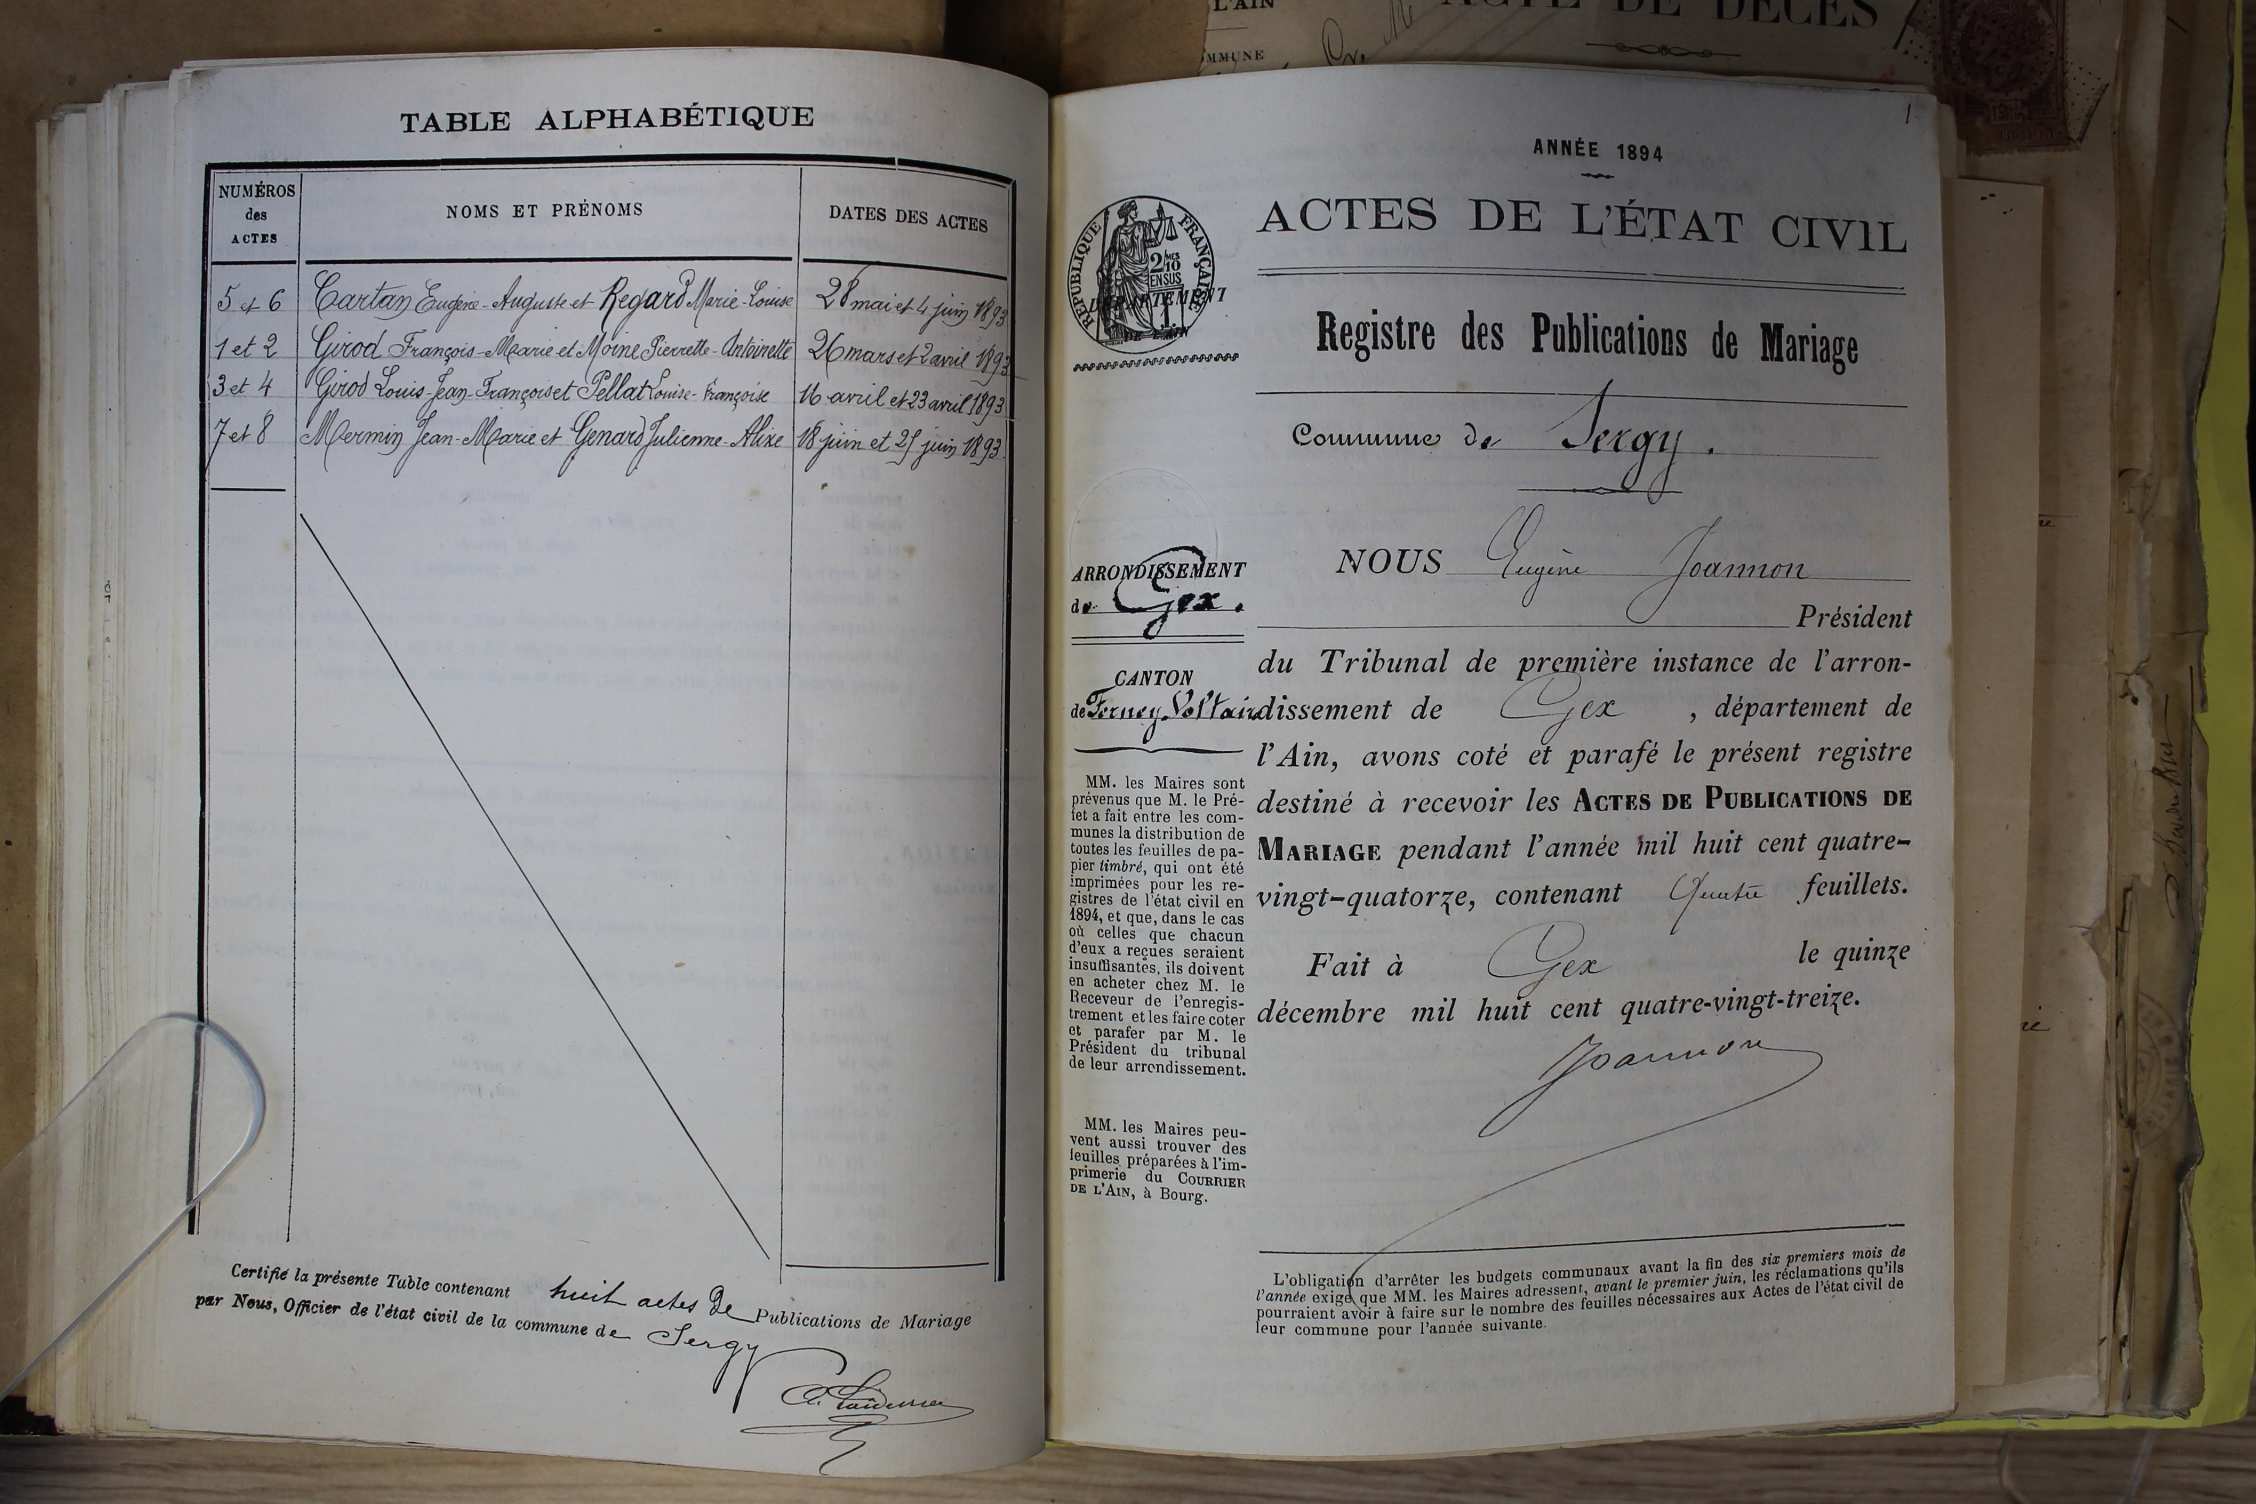 TABLE ALPHABÉTIQUE
NUMÉROS
des
ACTES
NOMS ET PRÉNOMS
DATES DES ACTES
5 et 6 Cartan Eugène-Auguste et Regard Marie-Louise 28 mai et 4 juin 1893
1 et 2 Girod François-Marie et Moine Pierrette-Antoinette 26 mars et 2 avril 1893
3 et 4 Girod Louis-Jean-François et Pellat Louise-Françoise 16 avril et 23 avril 1893
7 et 8 Mermin Jean-Marie et Genard Julienne-Alixe 18 juin et 25 juin 1893
Certifié la présente Table contenant huit actes de Publications de Mariage
par Nous, Officier de l'état civil de la commune de Sergy
L'AIN
ACTE DE DÉCÈS
COMMUNE
1
ANNÉE 1894
ACTES DE L'ÉTAT CIVIL
RÉPUBLIQUE FRANÇAISE
2/10
EN SUS
DÉPARTEMENT
DE L'AIN
Registre des Publications de Mariage
Commune de Sergy.
ARRONDISSEMENT
de Gex.
CANTON
de Ferney-Voltaire
MM. les Maires sont
prévenus que M. le Pré-
fet a fait entre les com-
munes la distribution de
toutes les feuilles de pa-
pier timbré, qui ont été
imprimées pour les re-
gistres de l'état civil en
1894, et que, dans le cas
où celles que chacun
d'eux a reçues seraient
insuffisantes, ils doivent
en acheter chez M. le
Receveur de l'enregis-
trement et les faire coter
et parafer par M. le
Président du tribunal
de leur arrondissement.
MM. les Maires peu-
vent aussi trouver des
feuilles préparées à l'im-
primerie du COURRIER
DE L'AIN, à Bourg.
NOUS Eugène Joannon
Président
du Tribunal de première instance de l'arron-
dissement de Gex, département de
l'Ain, avons coté et parafé le présent registre
destiné à recevoir les ACTES DE PUBLICATIONS DE
MARIAGE pendant l'année mil huit cent quatre-
vingt-quatorze, contenant Quatre feuillets.
Fait à Gex le quinze
décembre mil huit cent quatre-vingt-treize.
Joannon
L'obligation d'arrêter les budgets communaux avant la fin des six premiers mois de
l'année exige que MM. les Maires adressent, avant le premier juin, les réclamations qu'ils
pourraient avoir à faire sur le nombre des feuilles nécessaires aux Actes de l'état civil de
leur commune pour l'année suivante.